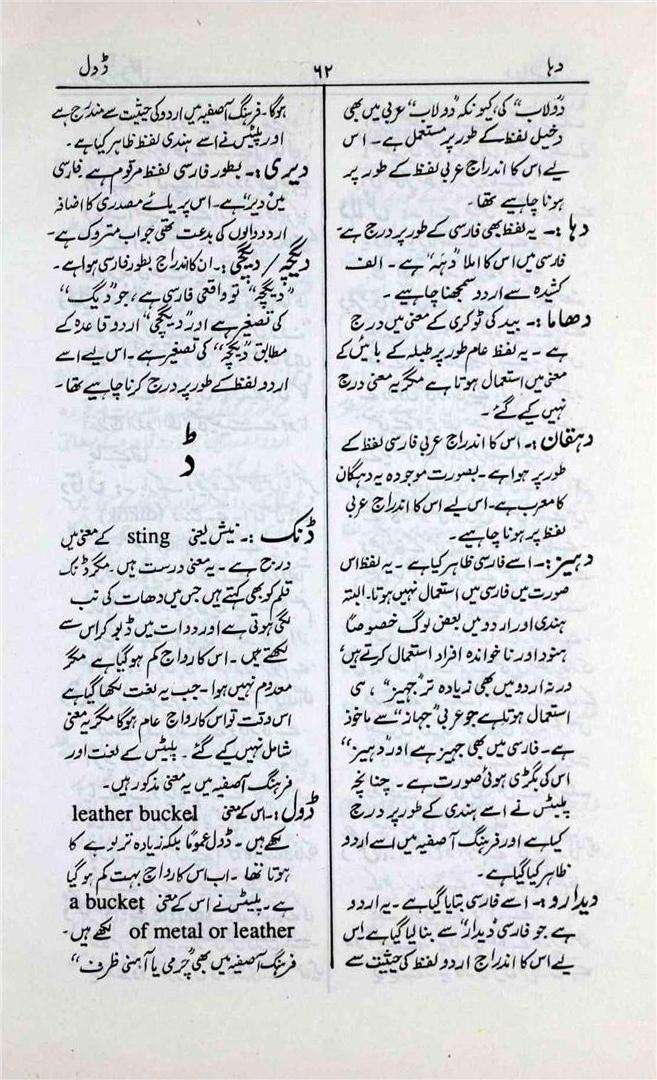 دہا
۶۲
ڈول
"دُولاب" کی، کیونکہ "دولاب" عربی میں بھی
دخیل لفظ کے طور پر مستعمل ہے۔ اس
لیے اس کا اندراج عربی لفظ کے طور پر
ہونا چاہیے تھا۔
دہا :۔ یہ لفظ بھی فارسی کے طور پر درج ہے۔
فارسی میں اس کا املا "دہہ" ہے۔ الف
کشیدہ سے اردو سمجھنا چاہیے۔
دھاما :۔ بید کی ٹوکری کے معنی میں درج
ہے۔ یہ لفظ عام طور پر طبلہ کے بائیں کے
معنی میں استعمال ہوتا ہے مگر یہ معنی درج
نہیں کیے گئے۔
دہقان :۔ اس کا اندراج عربی فارسی لفظ کے
طور پر ہوا ہے۔ بصورت موجودہ یہ دہگان
کا معرب ہے۔ اس لیے اس کا اندراج عربی
لفظ پر ہونا چاہیے۔
دہیز :۔ اسے فارسی ظاہر کیا ہے۔ یہ لفظ اس
صورت میں فارسی میں استعمال نہیں ہوتا۔ البتہ
ہندی اور اردو میں بعض لوگ خصوصاً
ہنود اور ناخواندہ افراد استعمال کرتے ہیں'
ورنہ اردو میں بھی زیادہ تر "جہیز"، ہی
استعمال ہوتا ہے جو عربی "جہاز" سے ماخوذ
ہے۔ فارسی میں بھی جہیز ہے اور "دہیز"
اس کی بگڑی ہوئی صورت ہے۔ چنانچہ
پلیٹس نے اسے ہندی کے طور پر درج
کیا ہے اور فرہنگ آصفیہ میں اسے اردو
ظاہر کیا گیا ہے۔
دیدارو :۔ اسے فارسی بتایا گیا ہے۔ یہ اردو
ہے جو فارسی "دیدار" سے بنا لیا گیا ہے اس
لیے اس کا اندراج اردو لفظ کی حیثیت سے
ہوگا۔ فرہنگ آصفیہ میں اردو کی حیثیت سے مندرج ہے
اور پلیٹس نے اسے ہندی لفظ ظاہر کیا ہے۔
دیری :۔ بطور فارسی لفظ مرقوم ہے۔ فارسی
میں "دیر" ہے۔ اس پر یائے مصدری کا اضافہ
اردو والوں کی بدعت تھی جو اب متروک ہے۔
دیگچہ / دیگچی :۔ ان کا اندراج بطور فارسی ہوا ہے۔
"دیگچہ" تو واقعی فارسی ہے، جو "دیگ"
کی تصغیر ہے اور "دیگچی" اردو قاعدہ کے
مطابق "دیگچہ" کی تصغیر ہے۔ اس لیے اسے
اردو لفظ کے طور پر درج کرنا چاہیے تھا۔
ڈ
ڈنک :۔ نیش یعنی sting کے معنی میں
درج ہے۔ یہ معنی درست ہیں۔ مگر ڈنک
قلم کو بھی کہتے ہیں جس میں دھات کی نب
لگی ہوتی ہے اور دوات میں ڈبو کر اس سے
لکھتے ہیں۔ اس کا رواج کم ہو گیا ہے مگر
معدوم نہیں ہوا۔ جب یہ لغت لکھا گیا ہے
اس وقت تو اس کا رواج عام ہوگا مگر یہ معنی
شامل نہیں کیے گئے۔ پلیٹس کے لغت اور
فرہنگ آصفیہ میں یہ معنی مذکور ہیں۔
ڈول :۔ اس کے معنی leather buckel
لکھے ہیں۔ ڈول عموماً بلکہ زیادہ تر لوہے کا
ہوتا تھا۔ اب اس کا رواج بہت کم ہو گیا
ہے۔ پلیٹس نے اس کے معنی a bucket
of metal or leather لکھے ہیں۔
فرہنگ آصفیہ میں بھی "چرمی یا آہنی ظرف"